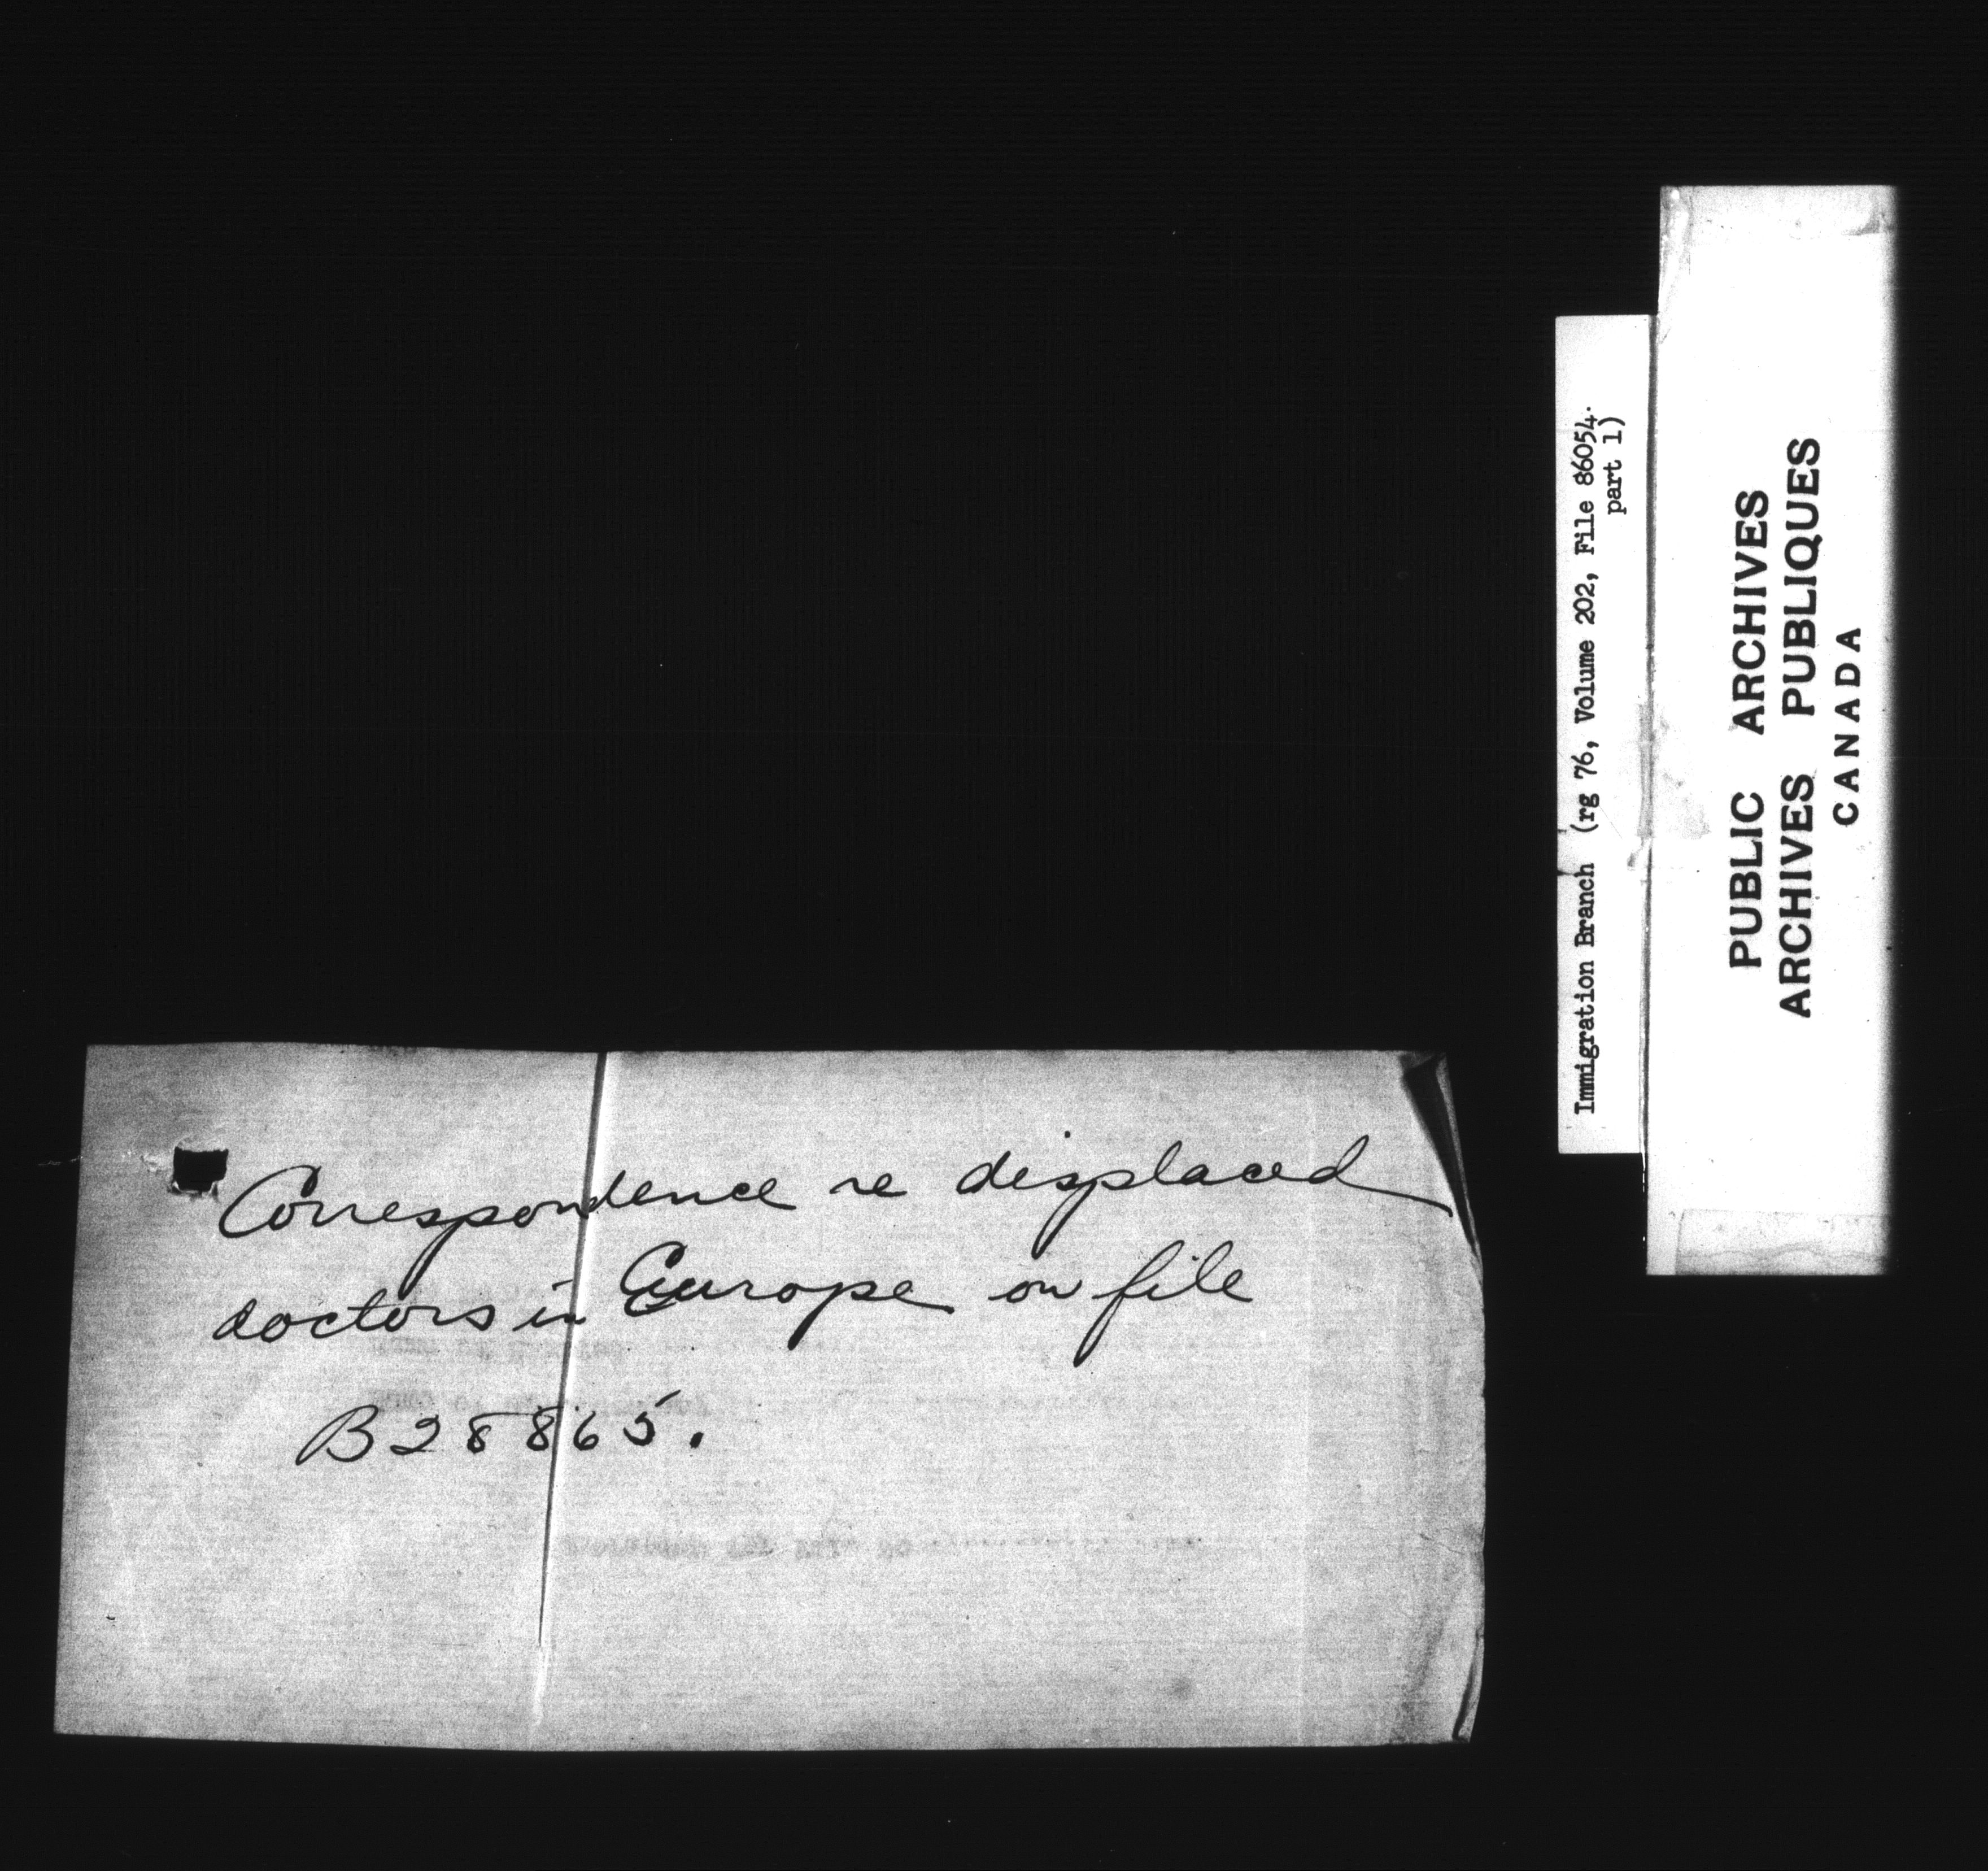 Correspondence re displaced
doctors in Europe on file
B28865.
Immigration Branch (rg 76, Volume 202, File 86054.
part 1)
PUBLIC ARCHIVES
ARCHIVES PUBLIQUES
CANADA